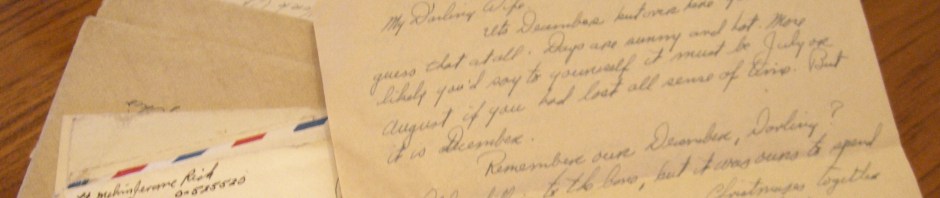 My Darling Wife,
Its December but over here you
guess that at all. Days are sunny and hot. More
likely you'd say to yourself it must be July or
August if you had lost all sense of time. But
it is December.
Remember our December, Darling?
to the bone, but it was ours to spend
Christmases together
Reid